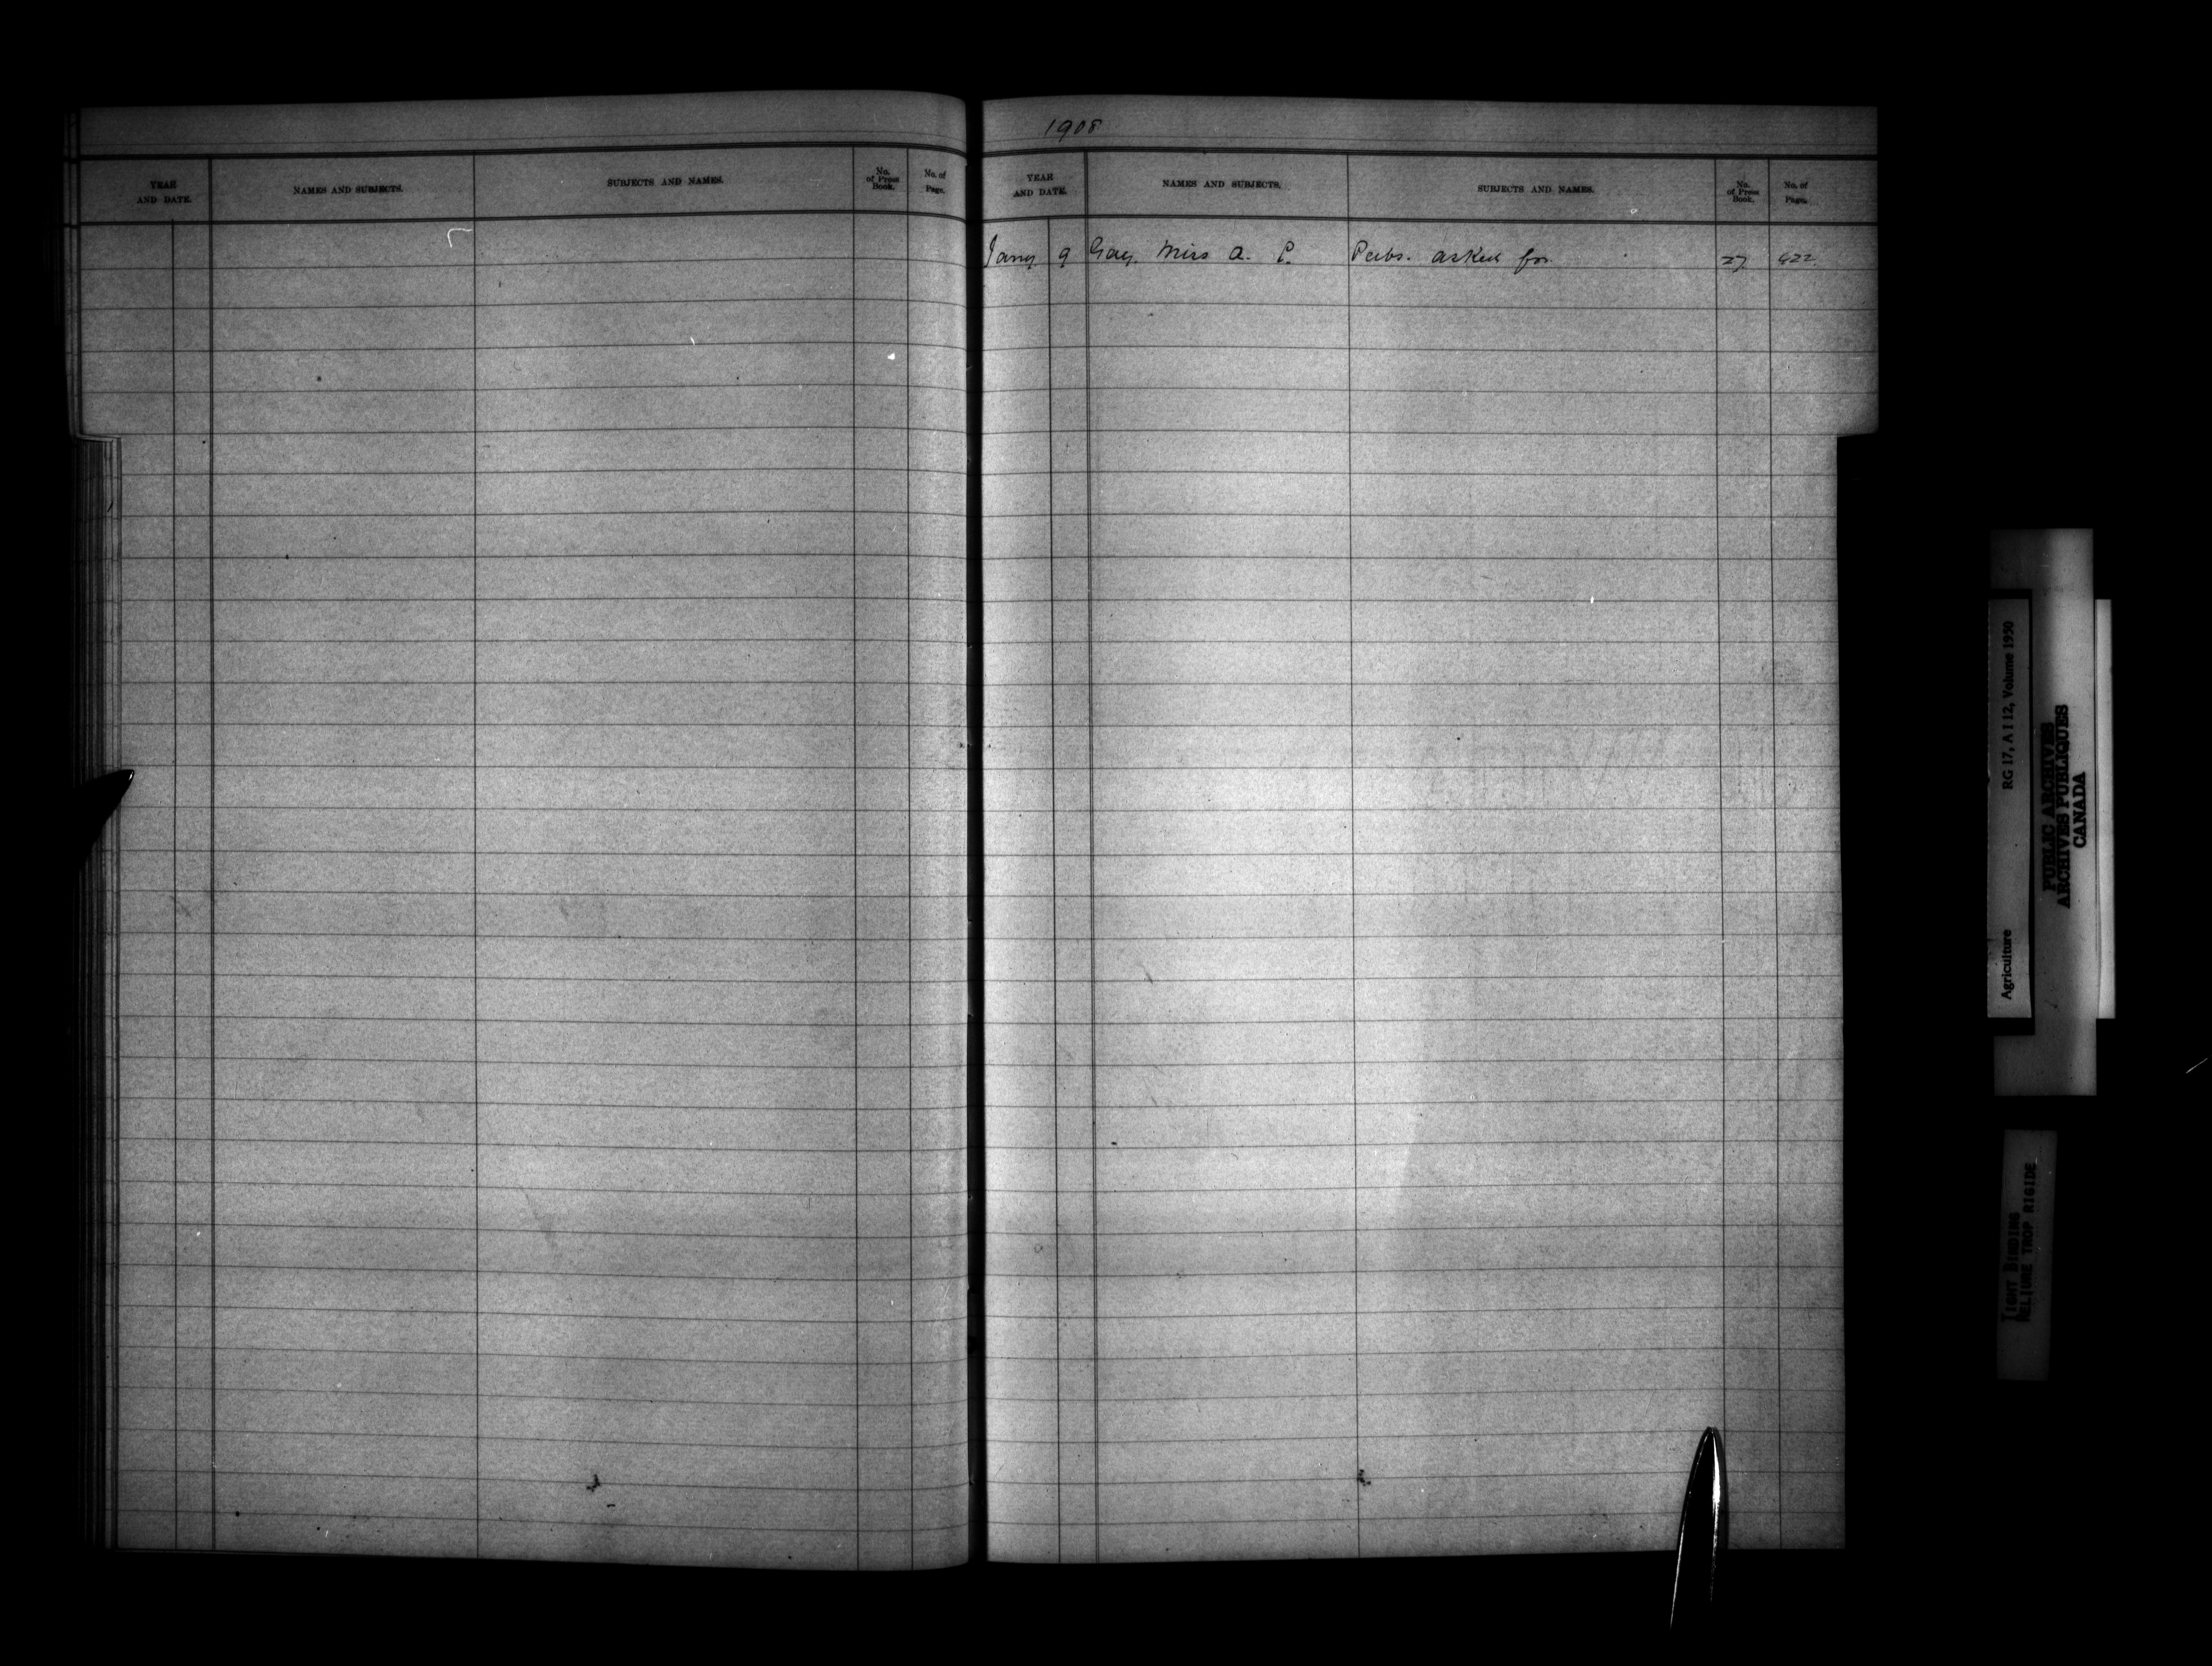 YEAR AND DATE. NAMES AND SUBJECTS. SUBJECTS AND NAMES. No. of Press Book. No. of Page.
1908
YEAR AND DATE. NAMES AND SUBJECTS. SUBJECTS AND NAMES. No. of Press Book. No. of Page.
Jany 9 Gay, Miss A. P. Pubs. asked for 27 422
Agriculture RG 17, A I 12, Volume 1950
PUBLIC ARCHIVES
ARCHIVES PUBLIQUES
CANADA
TIGHT BINDING
RELIURE TROP RIGIDE